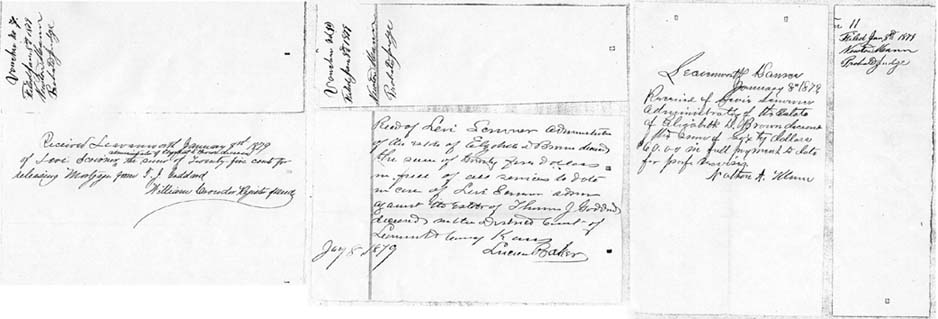 Voucher No 7
Filed Jan 8th 1879
Newton Mann
Probate Judge
Received Leavenworth January 8th 1879
of Levi Scrivner, the sum of Twenty five cents for
releasing Mortgage from T. J. Goddard
William Crowder, Register of Deeds
Voucher No
Filed Jan 8th 1879
Newton Mann
Probate Judge
Recd of Levi Scrivner Administrator
of the estate of Elizabeth D Brown deceased
the sum of Twenty Four dollars
in full of all services to date
in case of Levi Scrivner admr
against the estate of Thomas J. Goddard
deceased in the District Court of
Leavenworth County Kans
Jany 8 1879
Lucien Baker
Leavenworth Kansas
January 8th 1879
Received of Levi Scrivner
Administrator of the Estate
of Elizabeth D. Brown deceased
the sum of Sixty dollars
60.00 in full payment to date
for prof. services
11
Filed Jan 8th 1879
Newton Mann
Probate Judge